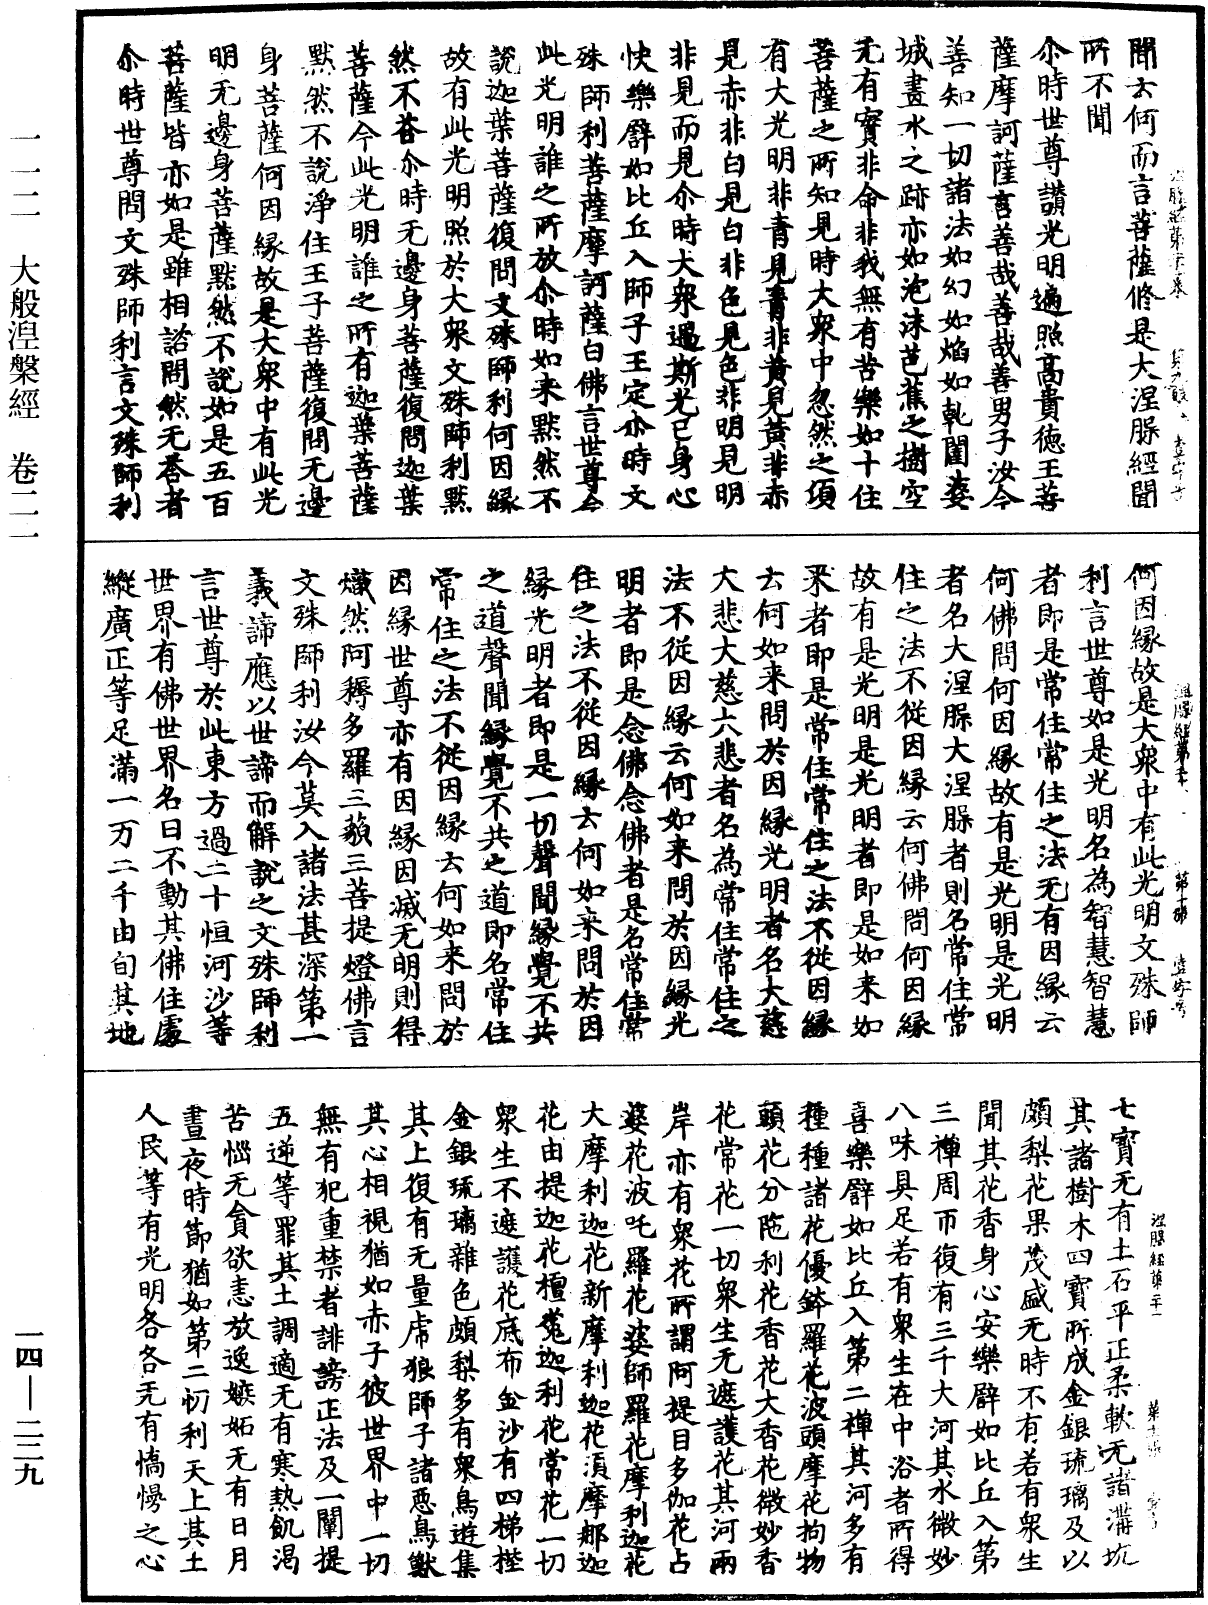 聞云何而言菩薩脩是大涅槃經聞
所不聞
尒時世尊讚光明遍照高貴德王菩
薩摩訶薩言善哉善哉善男子汝今
善知一切諸法如幻如焰如乹闥婆
城畫水之跡亦如泡沫芭蕉之樹空
无有實非命非我無有苦樂如十住
菩薩之所知見時大衆中忽然之頃
有大光明非青見青非黄見黄非赤
見赤非白見白非色見色非明見明
非見而見尒時大衆遇斯光已身心
快樂譬如比丘入師子王定尒時文
殊師利菩薩摩訶薩白佛言世尊今
此光明誰之所放尒時如来默然不
說迦葉菩薩復問文殊師利何因緣
故有此光明照於大衆文殊師利默
然不荅尒時无邊身菩薩復問迦葉
菩薩今此光明誰之所有迦葉菩薩
默然不說淨住王子菩薩復問无邊
身菩薩何因緣故是大衆中有此光
明无邊身菩薩默然不說如是五百
菩薩皆亦如是雖相諮問然无荅者
尒時世尊問文殊師利言文殊師利
何因緣故是大衆中有此光明文殊師
利言世尊如是光明名為智慧智慧
者即是常住常住之法无有因緣云
何佛問何因緣故有是光明是光明
者名大涅槃大涅槃者則名常住常
住之法不從因緣云何佛問何因緣
故有是光明是光明者即是如来如
来者即是常住常住之法不從因緣
云何如来問於因緣光明者名大慈
大悲大慈大悲者名為常住常住之
法不從因緣云何如来問於因緣光
明者即是念佛念佛者是名常住常
住之法不從因緣云何如来問於因
緣光明者即是一切聲聞緣覺不共
之道聲聞緣覺不共之道即名常住
常住之法不從因緣云何如来問於
因緣世尊亦有因緣因滅无明則得
熾然阿耨多羅三藐三菩提燈佛言
文殊師利汝今莫入諸法甚深第一
義諦應以世諦而解說之文殊師利
言世尊於此東方過二十恒河沙等
世界有佛世界名曰不動其佛住處
縱廣正等足滿一万二千由旬其地
七寶无有土石平正柔軟无諸溝坑
其諸樹木四寶所成金銀琉璃及以
頗梨花果茂盛无時不有若有衆生
聞其花香身心安樂譬如比丘入第
三禪周帀復有三千大河其水微妙
八味具足若有衆生在中浴者所得
喜樂譬如比丘入第二禪其河多有
種種諸花優鉢羅花波頭摩花拘物
頭花分陁利花香花大香花微妙香
花常花一切衆生无遮護花其河兩
岸亦有衆花所謂阿提目多伽花占
婆花波吒羅花婆師羅花摩利迦花
大摩利迦花新摩利迦花須摩那迦
花由提迦花檀㝹迦利花常花一切
衆生不遮護花底布金沙有四梯橙
金銀琉璃雜色頗梨多有衆鳥遊集
其上復有无量虎狼師子諸惡鳥獸
其心相視猶如赤子彼世界中一切
無有犯重禁者誹謗正法及一闡提
五逆等罪其土調適无有寒熱飢渴
苦惱无貪欲恚放逸嫉妬无有日月
晝夜時節猶如第二忉利天上其土
人民等有光明各各无有憍慢之心
一一二 大般涅槃經 卷二一
一四—二三九